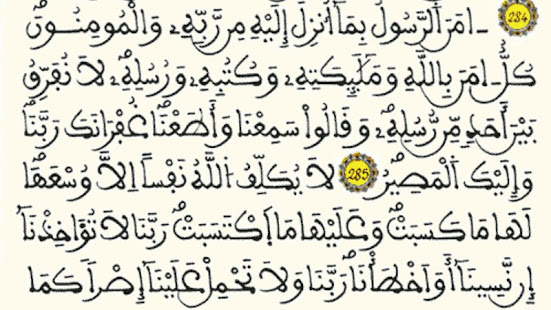 284 ـ امَنَ اَ۬لرَّسُولُ بِمَآ أُنزِلَ إِلَيْهِ مِن رَّبِّهِۦ وَالْمُومِنُونَۖ
كُلٌّ ـ امَنَ بِاللَّهِ وَمَلَٰٓئِكَتِهِۦ وَكُتُبِهِۦ وَرُسُلِهِۦۖ لَا نُفَرِّقُ
بَيْنَ أَحَدٍ مِّن رُّسُلِهِۦۖ وَقَالُواْ سَمِعْنَا وَأَطَعْنَاۖ غُفْرَانَكَ رَبَّنَا
وَإِلَيْكَ اَ۬لْمَصِيرُۖ 285 لَا يُكَلِّفُ اُ۬للَّهُ نَفْساً اِلَّا وُسْعَهَاۖ
لَهَا مَا كَسَبَتْۖ وَعَلَيْهَا مَا اَ۪كْتَسَبَتْۖ رَبَّنَا لَا تُؤَاخِذْنَآ
إِن نَّسِينَآ أَوَ اَخْطَأْنَاۖ رَبَّنَا وَلَا تَحْمِلْ عَلَيْنَآ إِصْراً كَمَا